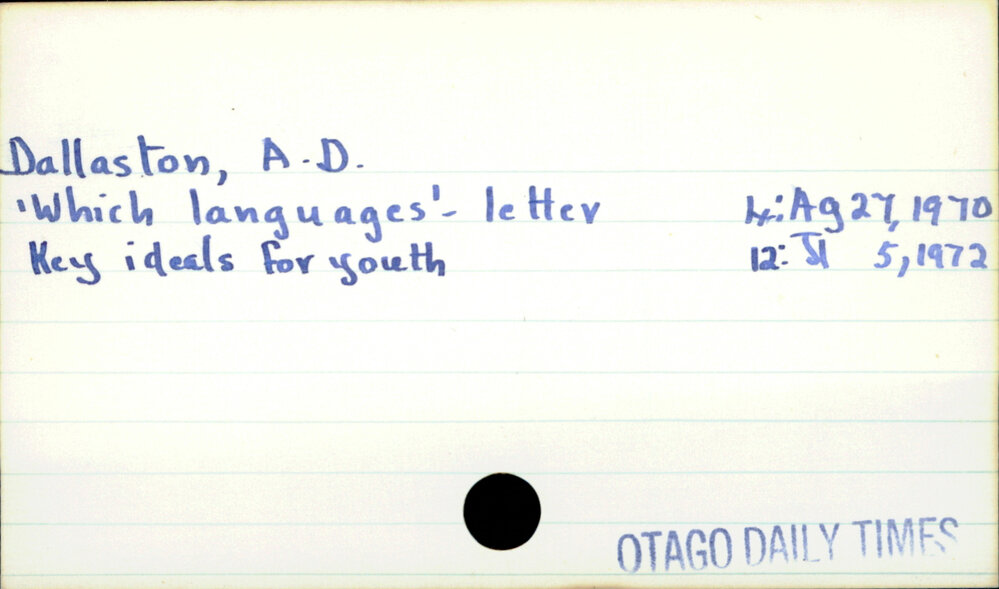 Dallaston, A.D.
'Which languages'- letter 4: Ag 27, 1970
Key ideals for youth 12: Jl 5, 1972
OTAGO DAILY TIMES